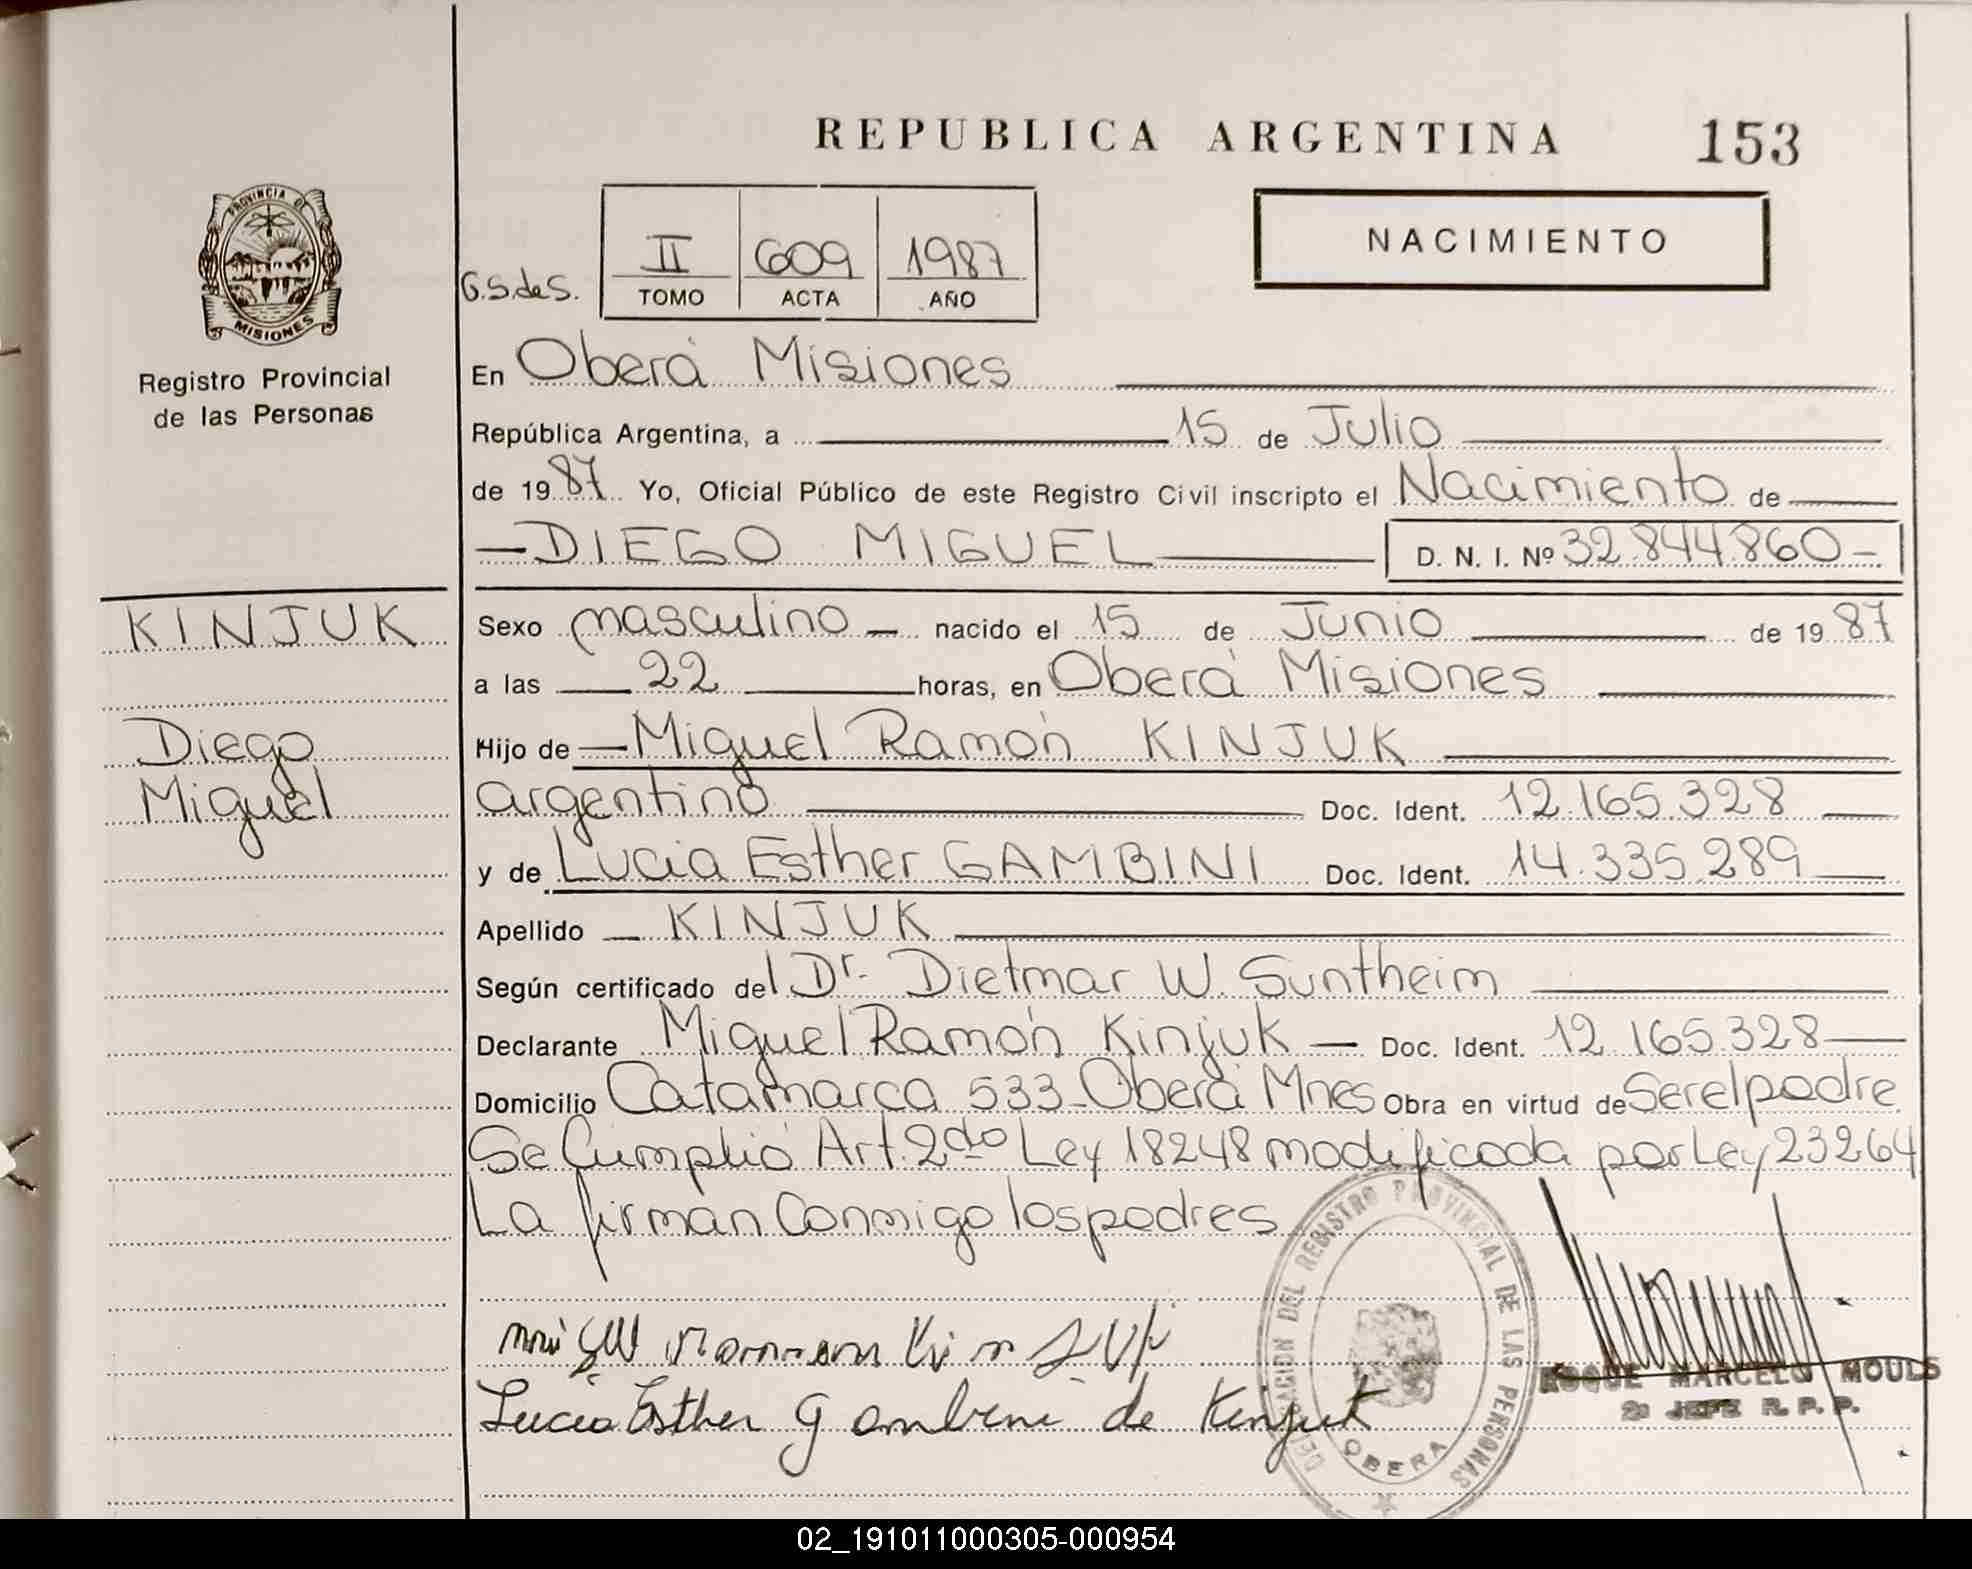 REPUBLICA ARGENTINA 153
PROVINCIA DE
MISIONES
Registro Provincial
de las Personas
NACIMIENTO
G.S.deS.
II 609 1987
TOMO ACTA AÑO
En Oberá Misiones
República Argentina, a 15 de Julio
de 1987 Yo, Oficial Público de este Registro Civil inscripto el Nacimiento de
DIEGO MIGUEL D. N. I. Nº 32.844.860-
KINJUK
Diego
Miguel
Sexo masculino nacido el 15 de Junio de 1987
a las 22 horas, en Oberá Misiones
Hijo de Miguel Ramón KINJUK
argentino Doc. Ident. 12.165.328
y de Lucia Esther GAMBINI Doc. Ident. 14.335.289
Apellido KINJUK
Según certificado del Dr. Dietmar W. Suntheim
Declarante Miguel Ramón Kinjuk Doc. Ident. 12.165.328
Domicilio Catamarca 533-Oberá Mnes Obra en virtud de Ser el padre
Se Cumplió Art. 2do Ley 18248 modificada por Ley 23264
La firman Conmigo los padres
Lucia Esther Gambini de Kinjuk
DELEGACION DEL REGISTRO PROVINCIAL DE LAS PERSONAS
OBERA
ROQUE MARCELO MOULS
2º JEFE R. P. P.
02_191011000305-000954